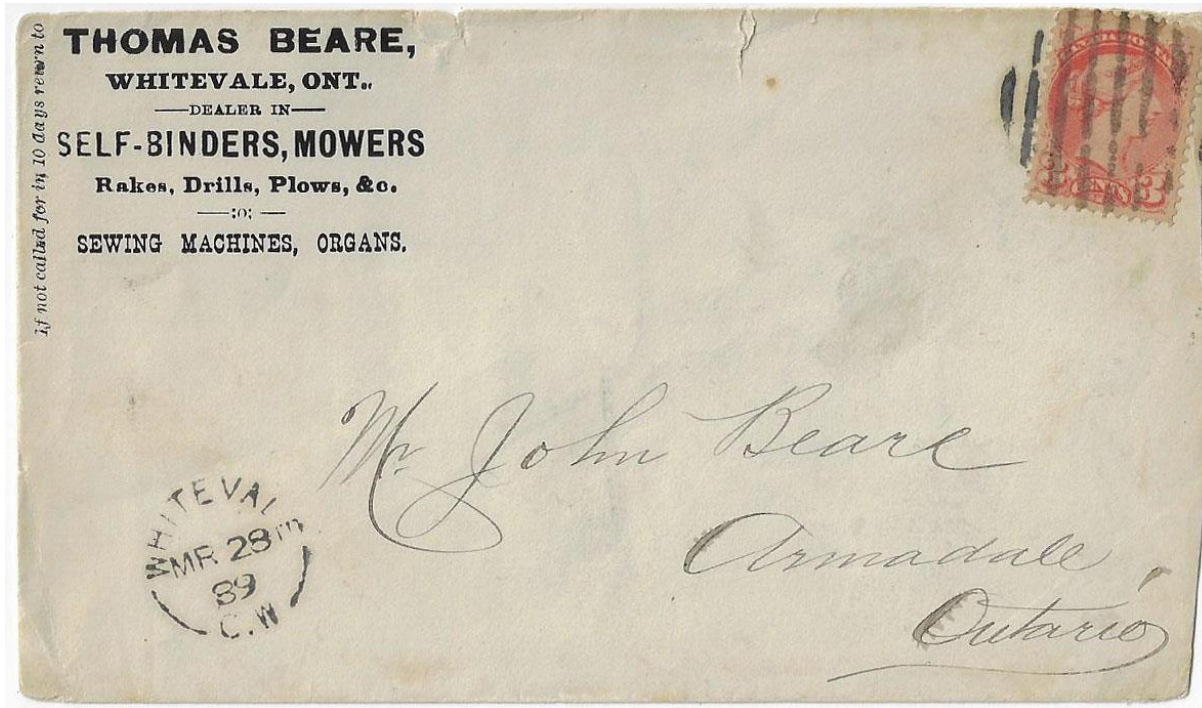 If not called for in 10 days return to
THOMAS BEARE,
WHITEVALE, ONT..
DEALER IN
SELF-BINDERS, MOWERS
Rakes, Drills, Plows, &c.
:o:
SEWING MACHINES, ORGANS.
3 CENTS 3
Mr John Beare
Armadale,
Ontario
WHITEVAL
MR 28TH
89
C.W